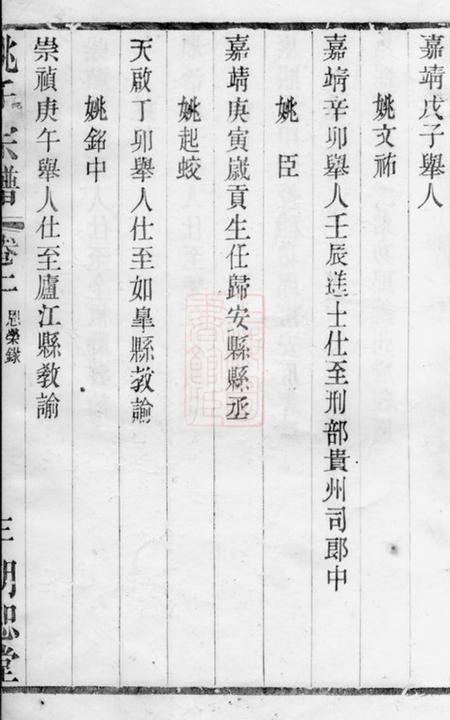 嘉靖戊子舉人
姚文祐
嘉靖辛卯舉人壬辰進士仕至刑部貴州司郎中
姚臣
嘉靖庚寅歲貢生任歸安縣縣丞
姚起蛟
天啟丁卯舉人仕至如臯縣教諭
姚銘中
崇禎庚午舉人仕至廬江縣教諭
姚氏宗譜
卷二
恩榮錄
明恕堂